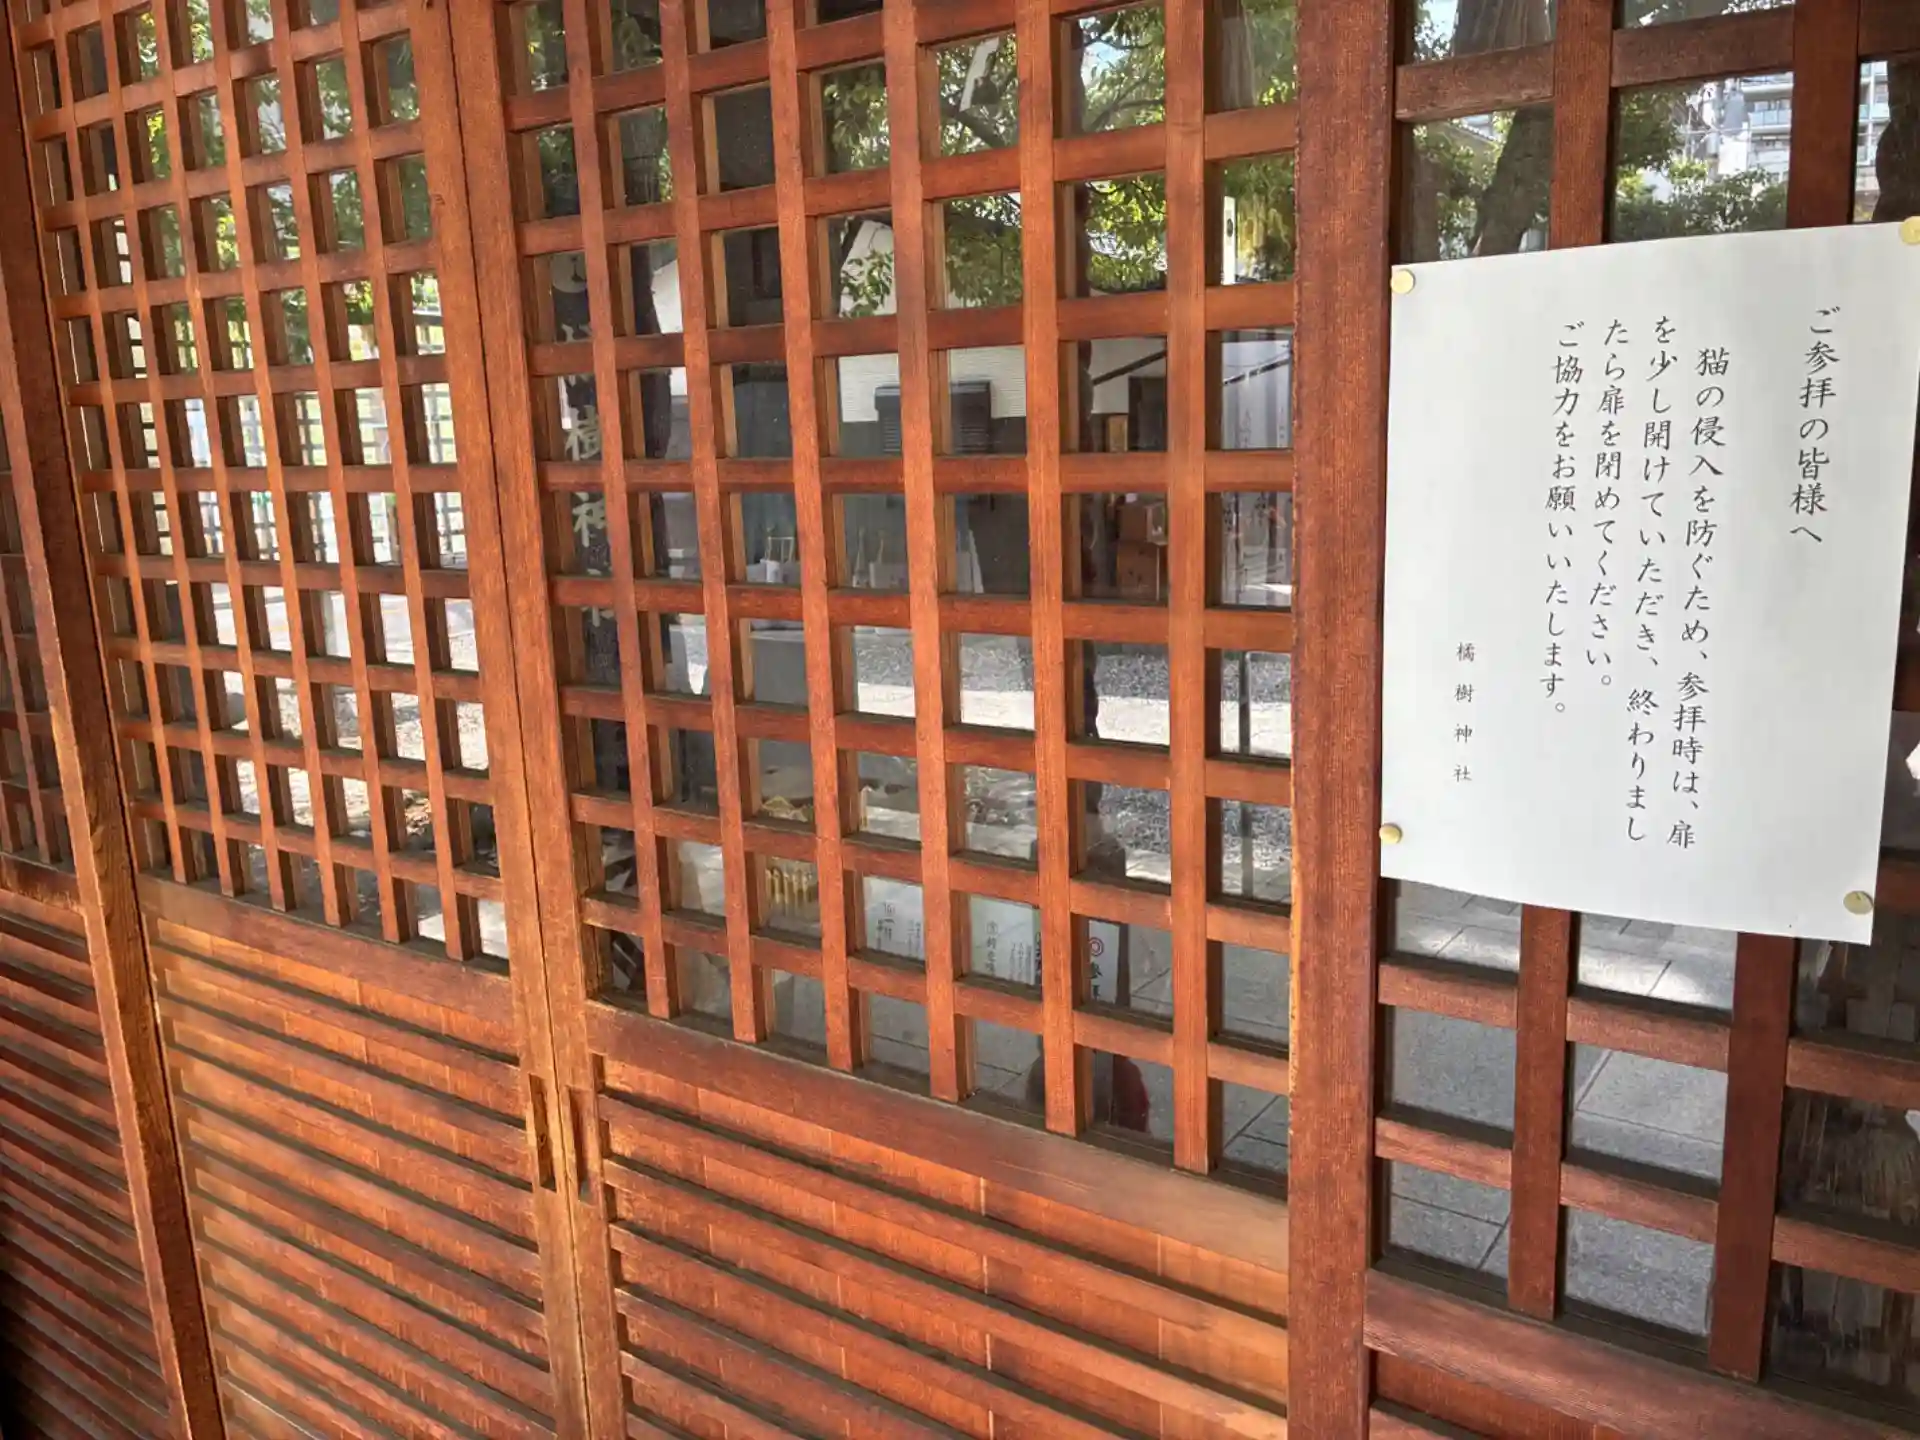 ご参拝の皆様へ
猫の侵入を防ぐため、参拝時は、扉
を少し開けていただき、終わりまし
たら扉を閉めてください。
ご協力をお願いいたします。
橘樹神社